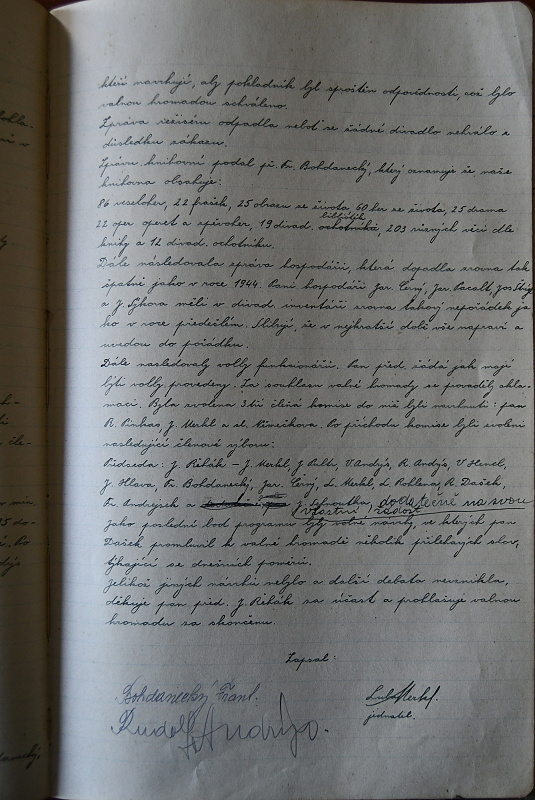 kteří navrhují, aby pokladník byl sproštěn odpovědnosti, což bylo
valnou hromadou schváleno.
Zpráva režisérů odpadla neboť se žádné divadlo nehrálo v
důsledku zákazu.
Zprávu knihovní podal př. Fr. Bohdanecký, který oznamuje že naše
knihovna obsahuje:
86 veseloher, 22 frašek, 25 obrazů ze života, 60 her ze života, 25 drama
22 oper operet a zpěvoher, 19 divad. biblioték, 203 různých věcí dle
knihy a 12 divad. ochotníků.
Dále následovala zpráva hospodářů, která dopadla zrovna tak
špatně jako v roce 1944. Páni hospodáři Jar. Černý, Jar. Pacalt, Jos.
a J. Sýkora měli v divad. inventáři zrovna takový nepořádek ja
ko v roce předešlém. Slibují, že v nejkratší době vše napraví a
uvedou do pořádku.
Dále nasledovaly volby funkcionářů. Pan před. žádá jak mají
býti volby provedeny. Za souhlasu valné hromady se prováděly akla-
mací. Byla zvolena 3tí členná komise do níž byli navrhnuti: pan
R. Pinkas, J. Merkl a st. Kiwečkova. Po příchodu komise byli zvoleni
následující členové výboru:
Předseda: J. Řehák – J. Merkl, J. Pultr, V. Andrýs, R. Andrýs, V. Hencl,
J. Hlava, Fr. Bohdanecký, Jar. Černý, L. Merkl, L. Rohlena, R. Dašek,
Fr. Andrejsek a J. Lhnoutka, dodatečně na svou
vlastní žádost
Jako poslední bod programu byly volné návrhy, ve kterých pan
Dašek promluvil k valné hromadě několik přiléhavých slov,
týkající se dnešních poměrů.
Jelikož jiných návrhů nebylo a další debata nevznikla,
děkuje pan před. J. Řehák za účast a prohlašuje valnou
hromadu za skončenu.
Zapsal:
Bohdanecký Frant.
Lub. Merkl.
jednatel.
Rudolf Andrýs.